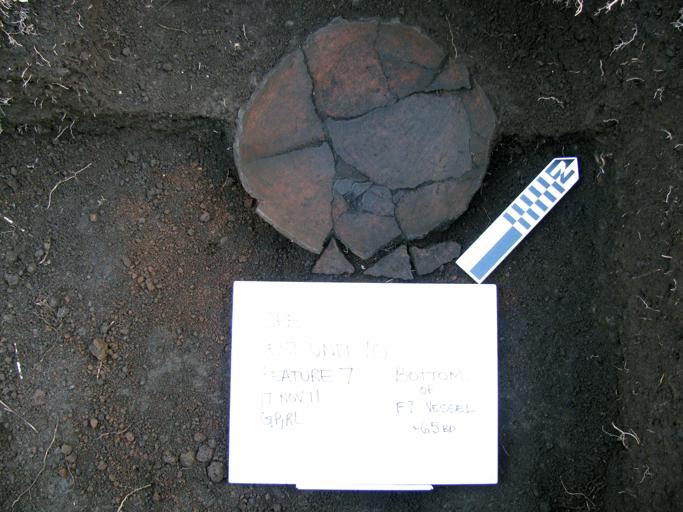 TEST UNIT 10
FEATURE 7
17 NOV 11
G,P,RL
BOTTOM
OF
F7 VESSEL
~65 BD
N